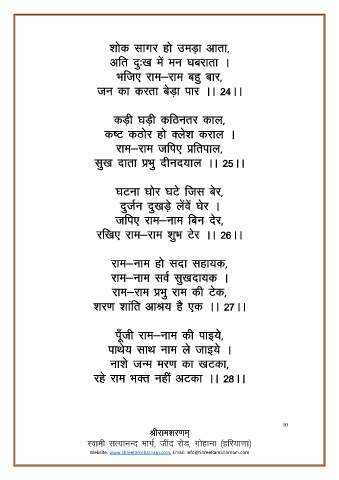 शोक सागर हो उमड़ा आता,
अति दुःख में मन घबराता ।
भजिए राम–राम बहु बार,
जन का करता बेड़ा पार ।। 24।।
कड़ी घड़ी कठिनतर काल,
कष्ट कठोर हो क्लेश कराल ।
राम–राम जपिए प्रतिपाल,
सुख दाता प्रभु दीनदयाल ।। 25।।
घटना घोर घटे जिस बेर,
दुर्जन दुखड़े लेंवें घेर ।
जपिए राम–नाम बिन देर,
रखिए राम–राम शुभ टेर ।। 26।।
राम–नाम हो सदा सहायक,
राम–नाम सर्व सुखदायक ।
राम–राम प्रभु राम की टेक,
शरण शांति आश्रय है एक ।। 27।।
पूँजी राम–नाम की पाइये,
पाथेय साथ नाम ले जाइये ।
नाशे जन्म मरण का खटका,
रहे राम भक्त नहीं अटका ।। 28।।
10
श्रीरामशरणम्
स्वामी सत्यानन्द मार्ग, जींद रोड, गोहाना (हरियाणा)
Website: www.shreeramsharnam.com, Email: info@ShreeRamSharnam.com